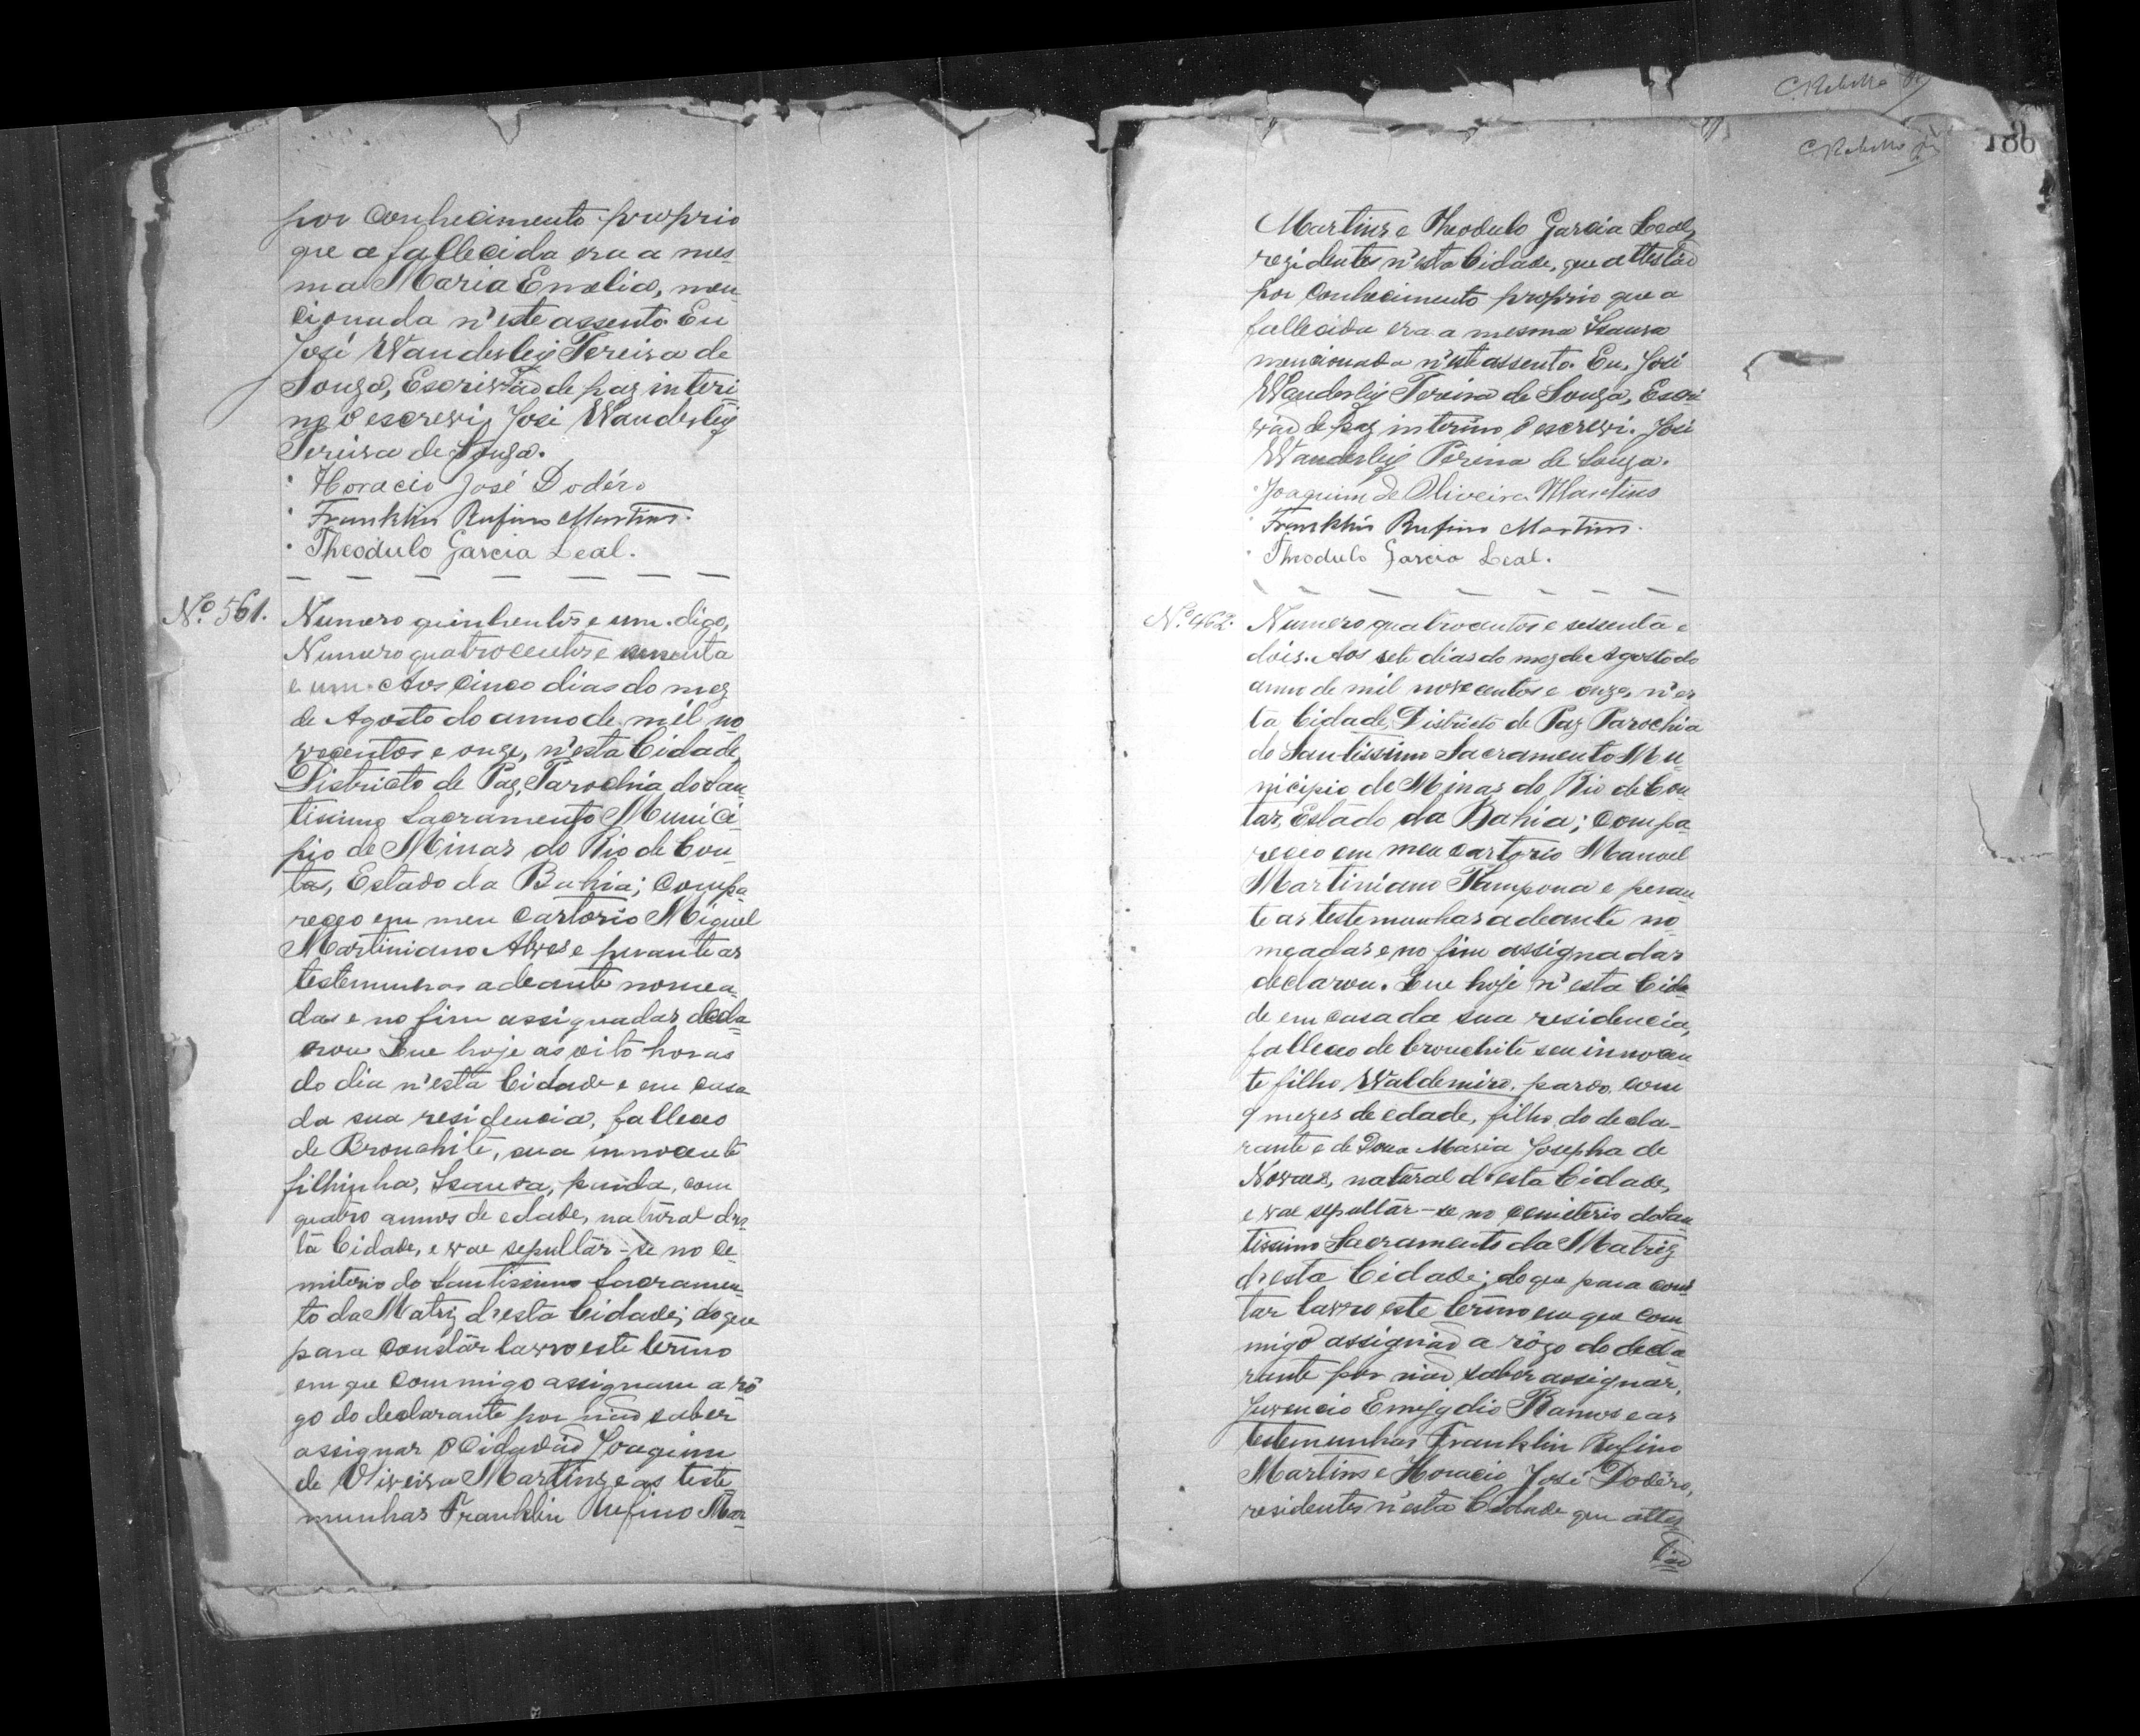 por conhecimento proprio
que a fallecida era a mes-
ma Maria Emelia, men-
cionada n'este assento. Eu
José Wanderley Pereira de
Souza, Escrivão de paz interi-
no o escrevi, José Wanderley
Pereira de Souza.
Horacio José Dodéro
Franklin Rufino Martins.
Theodulo Garcia Leal.
Nº 561.
Numero quinhentos e um. digo,
Numero quatrocentos e sessenta
e um. Aos cinco dias do mez
de Agosto do anno de mil no
vecentos e onze, n'esta Cidade,
Districto de Paz, Parochia do San-
tissimo Sacramento Munici-
pio de Minas do Rio de Con-
tas, Estado da Bahia; compa-
receo em meu cartorio Miguel
Martiniano Alves e perante as
testemunhas adeante nomea-
das e no fim assignadas decla-
rou Que hoje as oito horas
do dia n'esta Cidade e em casa
da sua residencia, falleceo
de Bronchite, sua innocente
filhinha, Isaura, parda, com
quatro annos de edade, natural des-
ta Cidade, e vae sepultar-se no ce-
miterio do Santissimo Sacramen-
to da Matriz d'esta Cidade; do que
para constar lavro este termo
em que commigo assignam a ro-
go do declarante por não saber
assignar o Cidadão Joaquim
de Oliveira Martins e as teste
munhas Franklin Rufino Mar-
C Rebello
C Rebello
186
Martins e Theodulo Garcia Leal,
rezidentes n'esta Cidade, que attestão
por conhecimento proprio que a
fallecida era a mesma Isaura
mencionada n'este assento. Eu, José
Wanderley Pereira de Souza, Escri
vão de paz interino o escrevi. José
Wanderley Pereira de Souza.
Joaquim de Oliveira Martins
Franklin Rufino Martins.
Theodulo Garcia Leal.
Nº 462.
Numero quatrocentos e sessenta e
dois. Aos sete dias do mez de Agosto do
anno de mil novecentos e onze, n'es
ta Cidade, Districto de Paz Parochia
do Santissimo Sacramento Mu-
nicipio de Minas do Rio de Con
tas, Estado da Bahia; compa
receo em meu cartorio Manoel
Martiniano Pampona e peran
te as testemunhas adeante no
meadas e no fim assignadas
declarou. Que hoje n'esta Cida-
de em casa da sua residencia,
falleceo de bronchite seu innocen
te filho, Waldemiro, pardo, com
9 mezes de edade, filho do decla-
rante e de Dona Maria Josepha de
Novaes, natural d'esta Cidade,
e vae sepultar-se no cemiterio do San
tissimo Sacramento da Matriz
d'esta Cidade; do que para cons
tar lavro este termo em que com
migo assignão a rôgo do decla
rante por não saber assignar,
Juvencio Emygdio Ramos e as
testemunhas Franklin Rufino
Martins e Horacio José Dodéro,
residentes n'esta Cidade que attes
tão